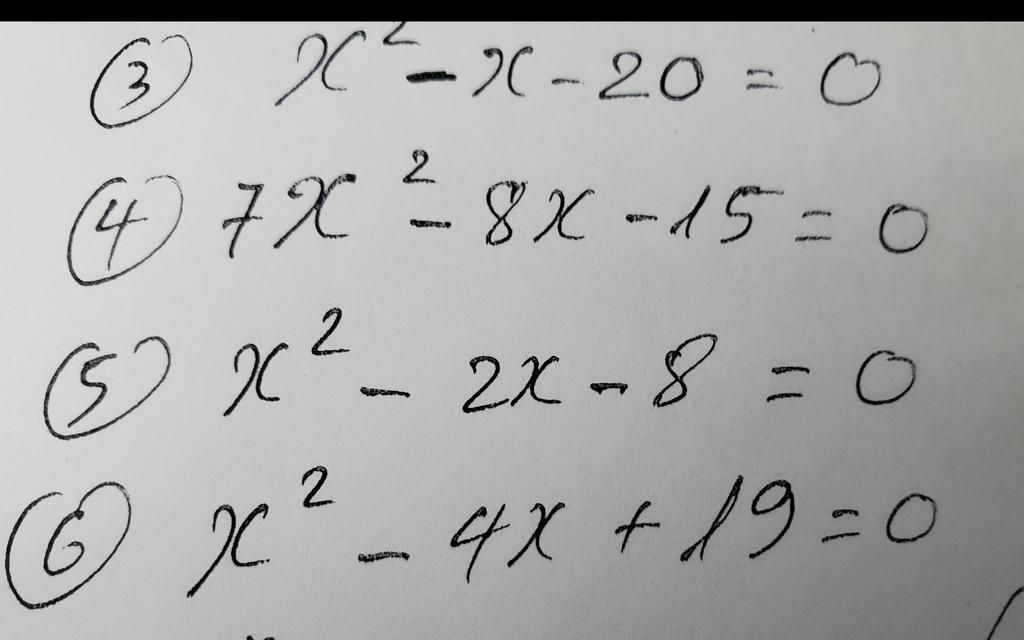 ③ x² - x - 20 = 0
④ 7x² - 8x - 15 = 0
⑤ x² - 2x - 8 = 0
⑥ x² - 4x + 19 = 0